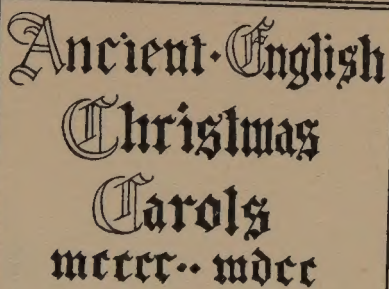 Ancient · English
Christmas
Carols
mcccc·· mdcc